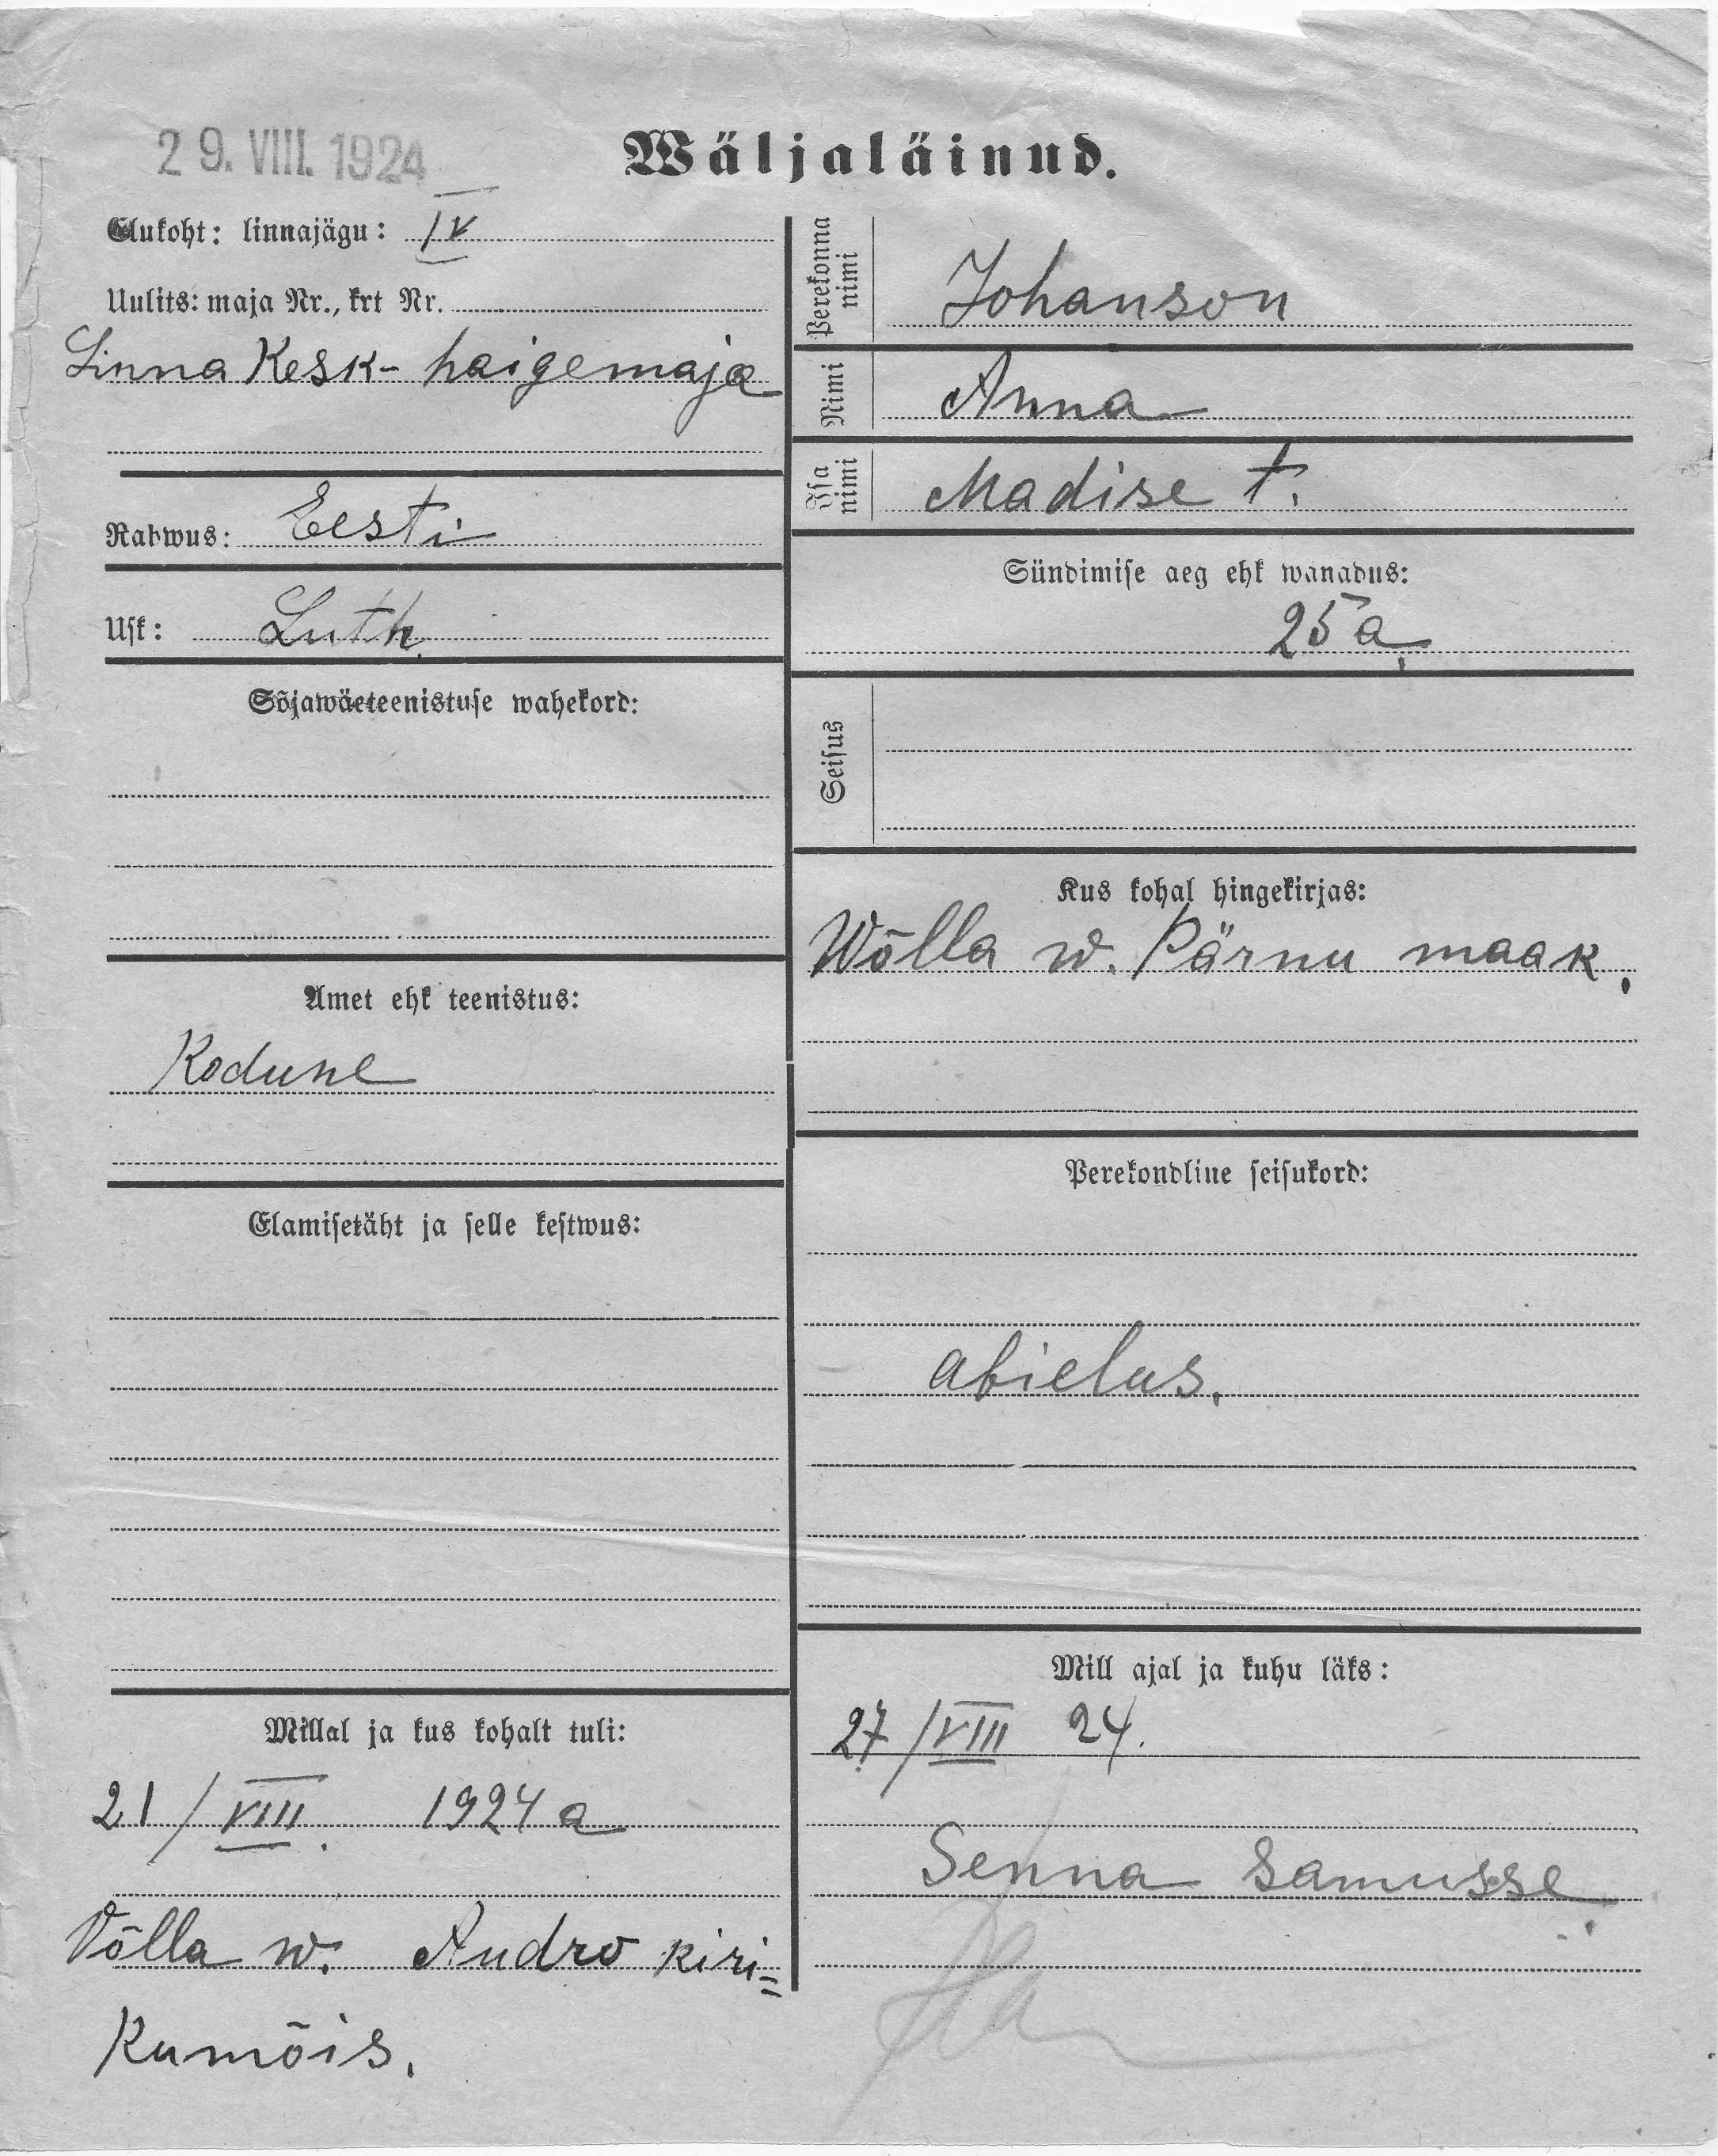 29. VIII. 1924
Wäljaläinud.
Elukoht: linnajägu: IV
Uulits: maja Nr., krt Nr.
Linna Kesk-haigemaja
Rahwus: Eesti
Usk: Luth.
Sõjawäeteenistuse wahekord:
Amet ehk teenistus:
Kodune
Elamisetäht ja selle kestwus:
Millal ja kus kohalt tuli:
21/VIII. 1924 a
Võlla w. Audro kiri=
kumõis.
Perekonna
nimi
Johanson
Nimi
Anna
Isa
nimi
Madise t.
Sündimise aeg ehk wanadus:
25 a.
Seisus
Kus kohal hingekirjas:
Wõlla w. Pärnu maak.
Perekondline seisukord:
abielus.
Mill ajal ja kuhu läks:
27/VIII 24.
Senna samusse.